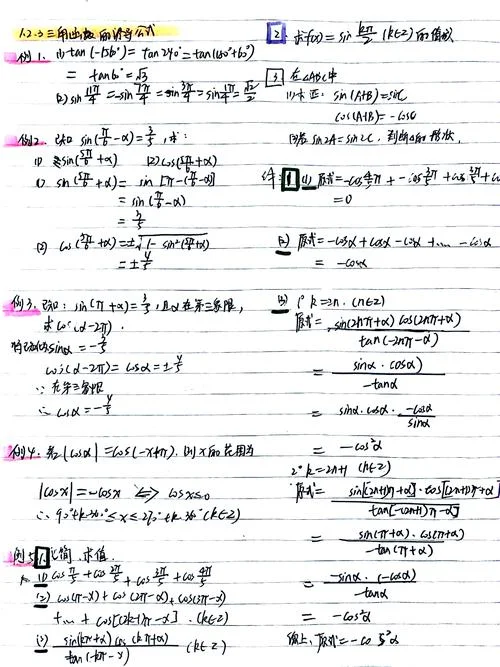 1.2.3 三角函数的诱导公式
例1. (1) tan(-150°) = tan240° = tan(180°+60°)
= tan60° = √3
(2) sin 11π/4 = -sin 7π/4 = sin 3π/4 = sin π/4 = √2/2
例2. 已知 sin(π/6 - α) = 3/5, 求:
(1) sin(5π/6 + α) (2) cos(5π/6 + α)
(1) sin(5π/6 + α) = sin[π - (π/6 - α)]
= sin(π/6 - α)
= 3/5
(2) cos(5π/6 + α) = ±√(1 - sin²(5π/6 + α))
= ±4/5
例3. 已知: sin(π + α) = 3/5, 且α在第三象限,
求cos(α - 2π).
sinα = -3/5
cos(α - 2π) = cosα = ±4/5
∵ 在第三象限
∴ cosα = -4/5
例4. 若|cosα| = cos(-x+π), 则x的范围为
|cosx| = -cosx ⟺ cosx ≤ 0
∴ 90°+k·360° ≤ x ≤ 270°+k·360° (k∈Z)
例5 1. 化简、求值.
(1) cos π/5 + cos 2π/5 + cos 3π/5 + cos 4π/5
(2) cos(π-x) + cos(2π-x) + cos(3π-x)
+ ... + cos[(2k-1)π-x]. (k∈Z)
(3) sin(kπ+x) cos(kπ+x) / tan(-kπ-x) (k∈Z)
2 求f(x) = sin kπ/2 (k∈Z) 的值域
3 在△ABC中
(1) 求证: sin(A+B) = sinC
cos(A+B) = -cosC
(2) 若 sin2A = sin2C, 判断△的形状.
1 (1) 原式 = -cos 4π/5 + -cos 3π/5 + cos 3π/5 + co
= 0
(2) 原式 = -cosα + cosα - cosα + ... - cosα
= -cosα
(3) 1° k=2n. (n∈Z)
原式 = sin(2nπ+α) cos(2nπ+α) / tan(-2nπ-α)
= sinα · cosα / -tanα
= sinα · cosα · -cosα/sinα
= -cos²α
2° k=2n+1 (n∈Z)
原式 = sin[(2n+1)π+α] · cos[(2n+1)π+α] / tan[-(2n+1)π-α]
= sin(π+α) · cos(π+α) / -tan(π+α)
= -sinα · (-cosα) / -tanα
= -cos²α
综上, 原式 = -cos²α